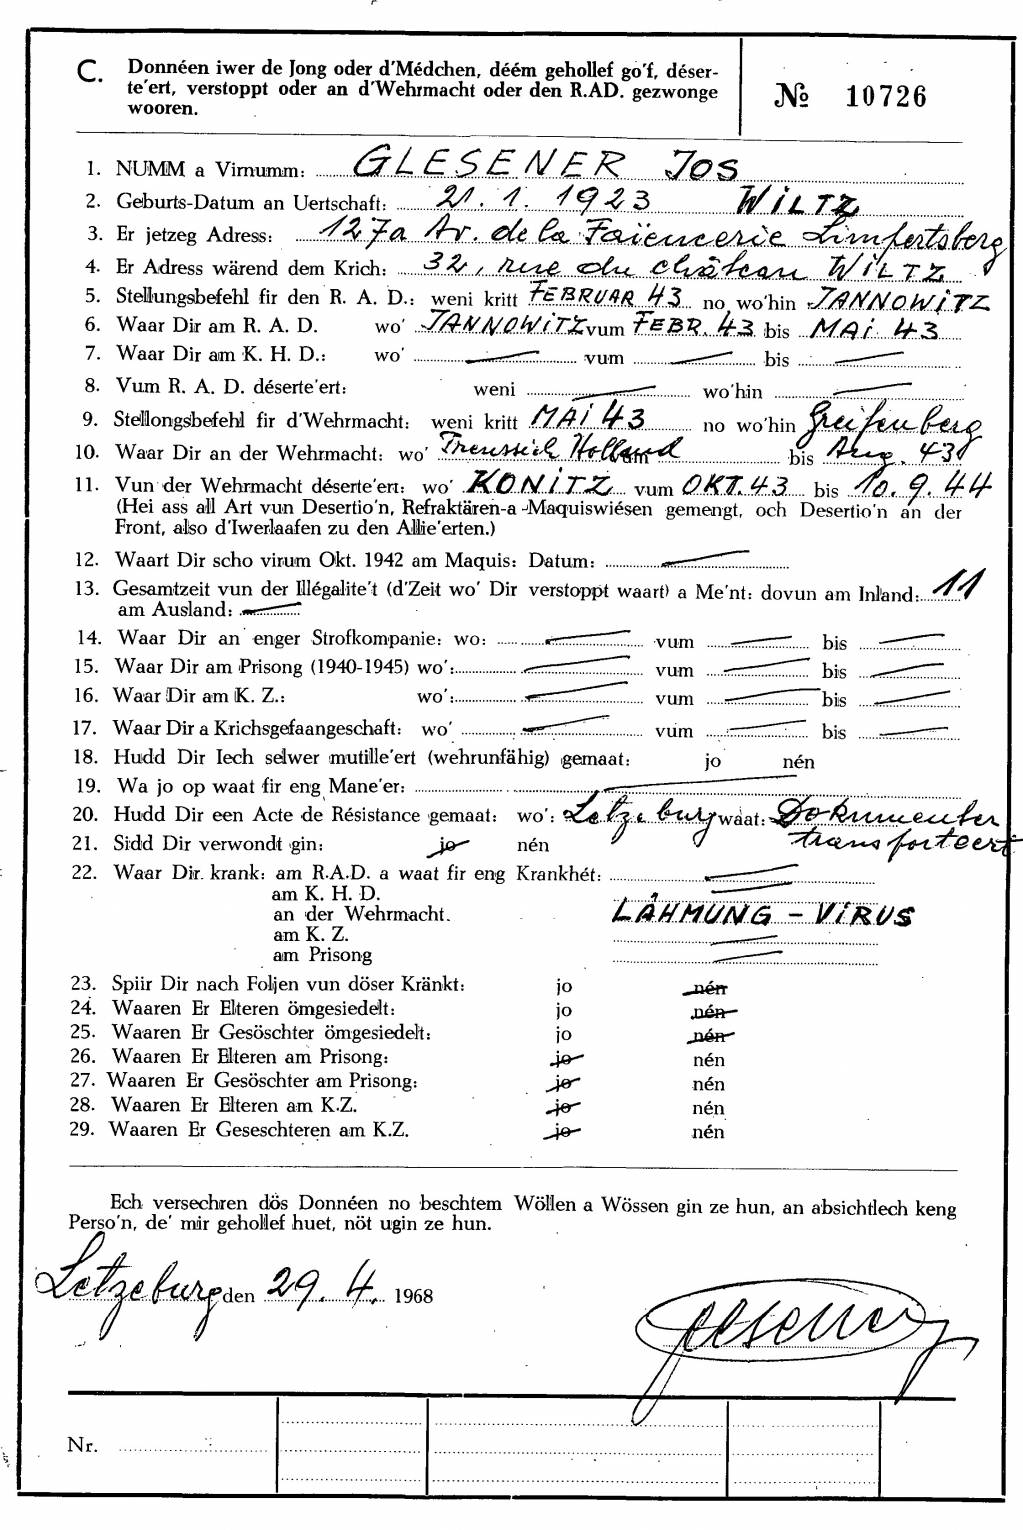 C. Donnéen iwer de Jong oder d'Médchen, déém gehollef go'f, déser-
te'ert, verstoppt oder an d'Wehrmacht oder den R.AD. gezwonge
wooren.
№ 10726
1. NUMM a Virnumm: GLESENER JOS
2. Geburts-Datum an Uertschaft: 21.1.1923 WILTZ
3. Er jetzeg Adress: 127a Av. de la Faïencerie Limpertsberg
4. Er Adress wärend dem Krich: 32, rue du château WILTZ
5. Stellungsbefehl fir den R. A. D.: weni kritt FEBRUAR 43 no wo'hin JANNOWITZ
6. Waar Dir am R. A. D. wo' JANNOWITZ vum FEBR. 43 bis MAI 43
7. Waar Dir am K. H. D.: wo' vum bis
8. Vum R. A. D. déserte'ert: weni wo'hin
9. Stellongsbefehl fir d'Wehrmacht: weni kritt MAI 43 no wo'hin Greifenberg
10. Waar Dir an der Wehrmacht: wo' Holland vum bis Aug. 43
11. Vun der Wehrmacht déserte'ert: wo' KONITZ vum OKT. 43 bis 10.9.44
(Hei ass all Art vun Desertio'n, Refraktären-a -Maquiswiésen gemengt, och Desertio'n an der
Front, also d'Iwerlaafen zu den Allie'erten.)
12. Waart Dir scho virum Okt. 1942 am Maquis: Datum:
13. Gesamtzeit vun der Illégalite't (d'Zeit wo' Dir verstoppt waart) a Me'nt: dovun am Inland: 11
am Ausland:
14. Waar Dir an enger Strofkompanie: wo: vum bis
15. Waar Dir am Prisong (1940-1945) wo': vum bis
16. Waar Dir am K. Z.: wo': vum bis
17. Waar Dir a Krichsgefaangeschaft: wo' vum bis
18. Hudd Dir Iech selwer mutille'ert (wehrunfähig) gemaat: jo nén
19. Wa jo op waat fir eng Mane'er:
20. Hudd Dir een Acte de Résistance gemaat: wo': Letzeburg waat: Dokumenter
transporteert
21. Sidd Dir verwondt gin: jo nén
22. Waar Dir krank: am R.A.D. a waat fir eng Krankhét:
am K. H. D.
an der Wehrmacht. LÄHMUNG - VIRUS
am K. Z.
am Prisong
23. Spiir Dir nach Foljen vun döser Kränkt: jo nén
24. Waaren Er Elteren ömgesiedelt: jo nén
25. Waaren Er Gesöschter ömgesiedelt: jo nén
26. Waaren Er Elteren am Prisong: jo nén
27. Waaren Er Gesöschter am Prisong: jo nén
28. Waaren Er Elteren am K.Z. jo nén
29. Waaren Er Geseschteren am K.Z. jo nén
Ech versechren dös Donnéen no beschtem Wöllen a Wössen gin ze hun, an absichtlech keng
Perso'n, de' mir gehollef huet, nöt ugin ze hun.
Letzeburg den 29.4. 1968
Glesener
Nr.